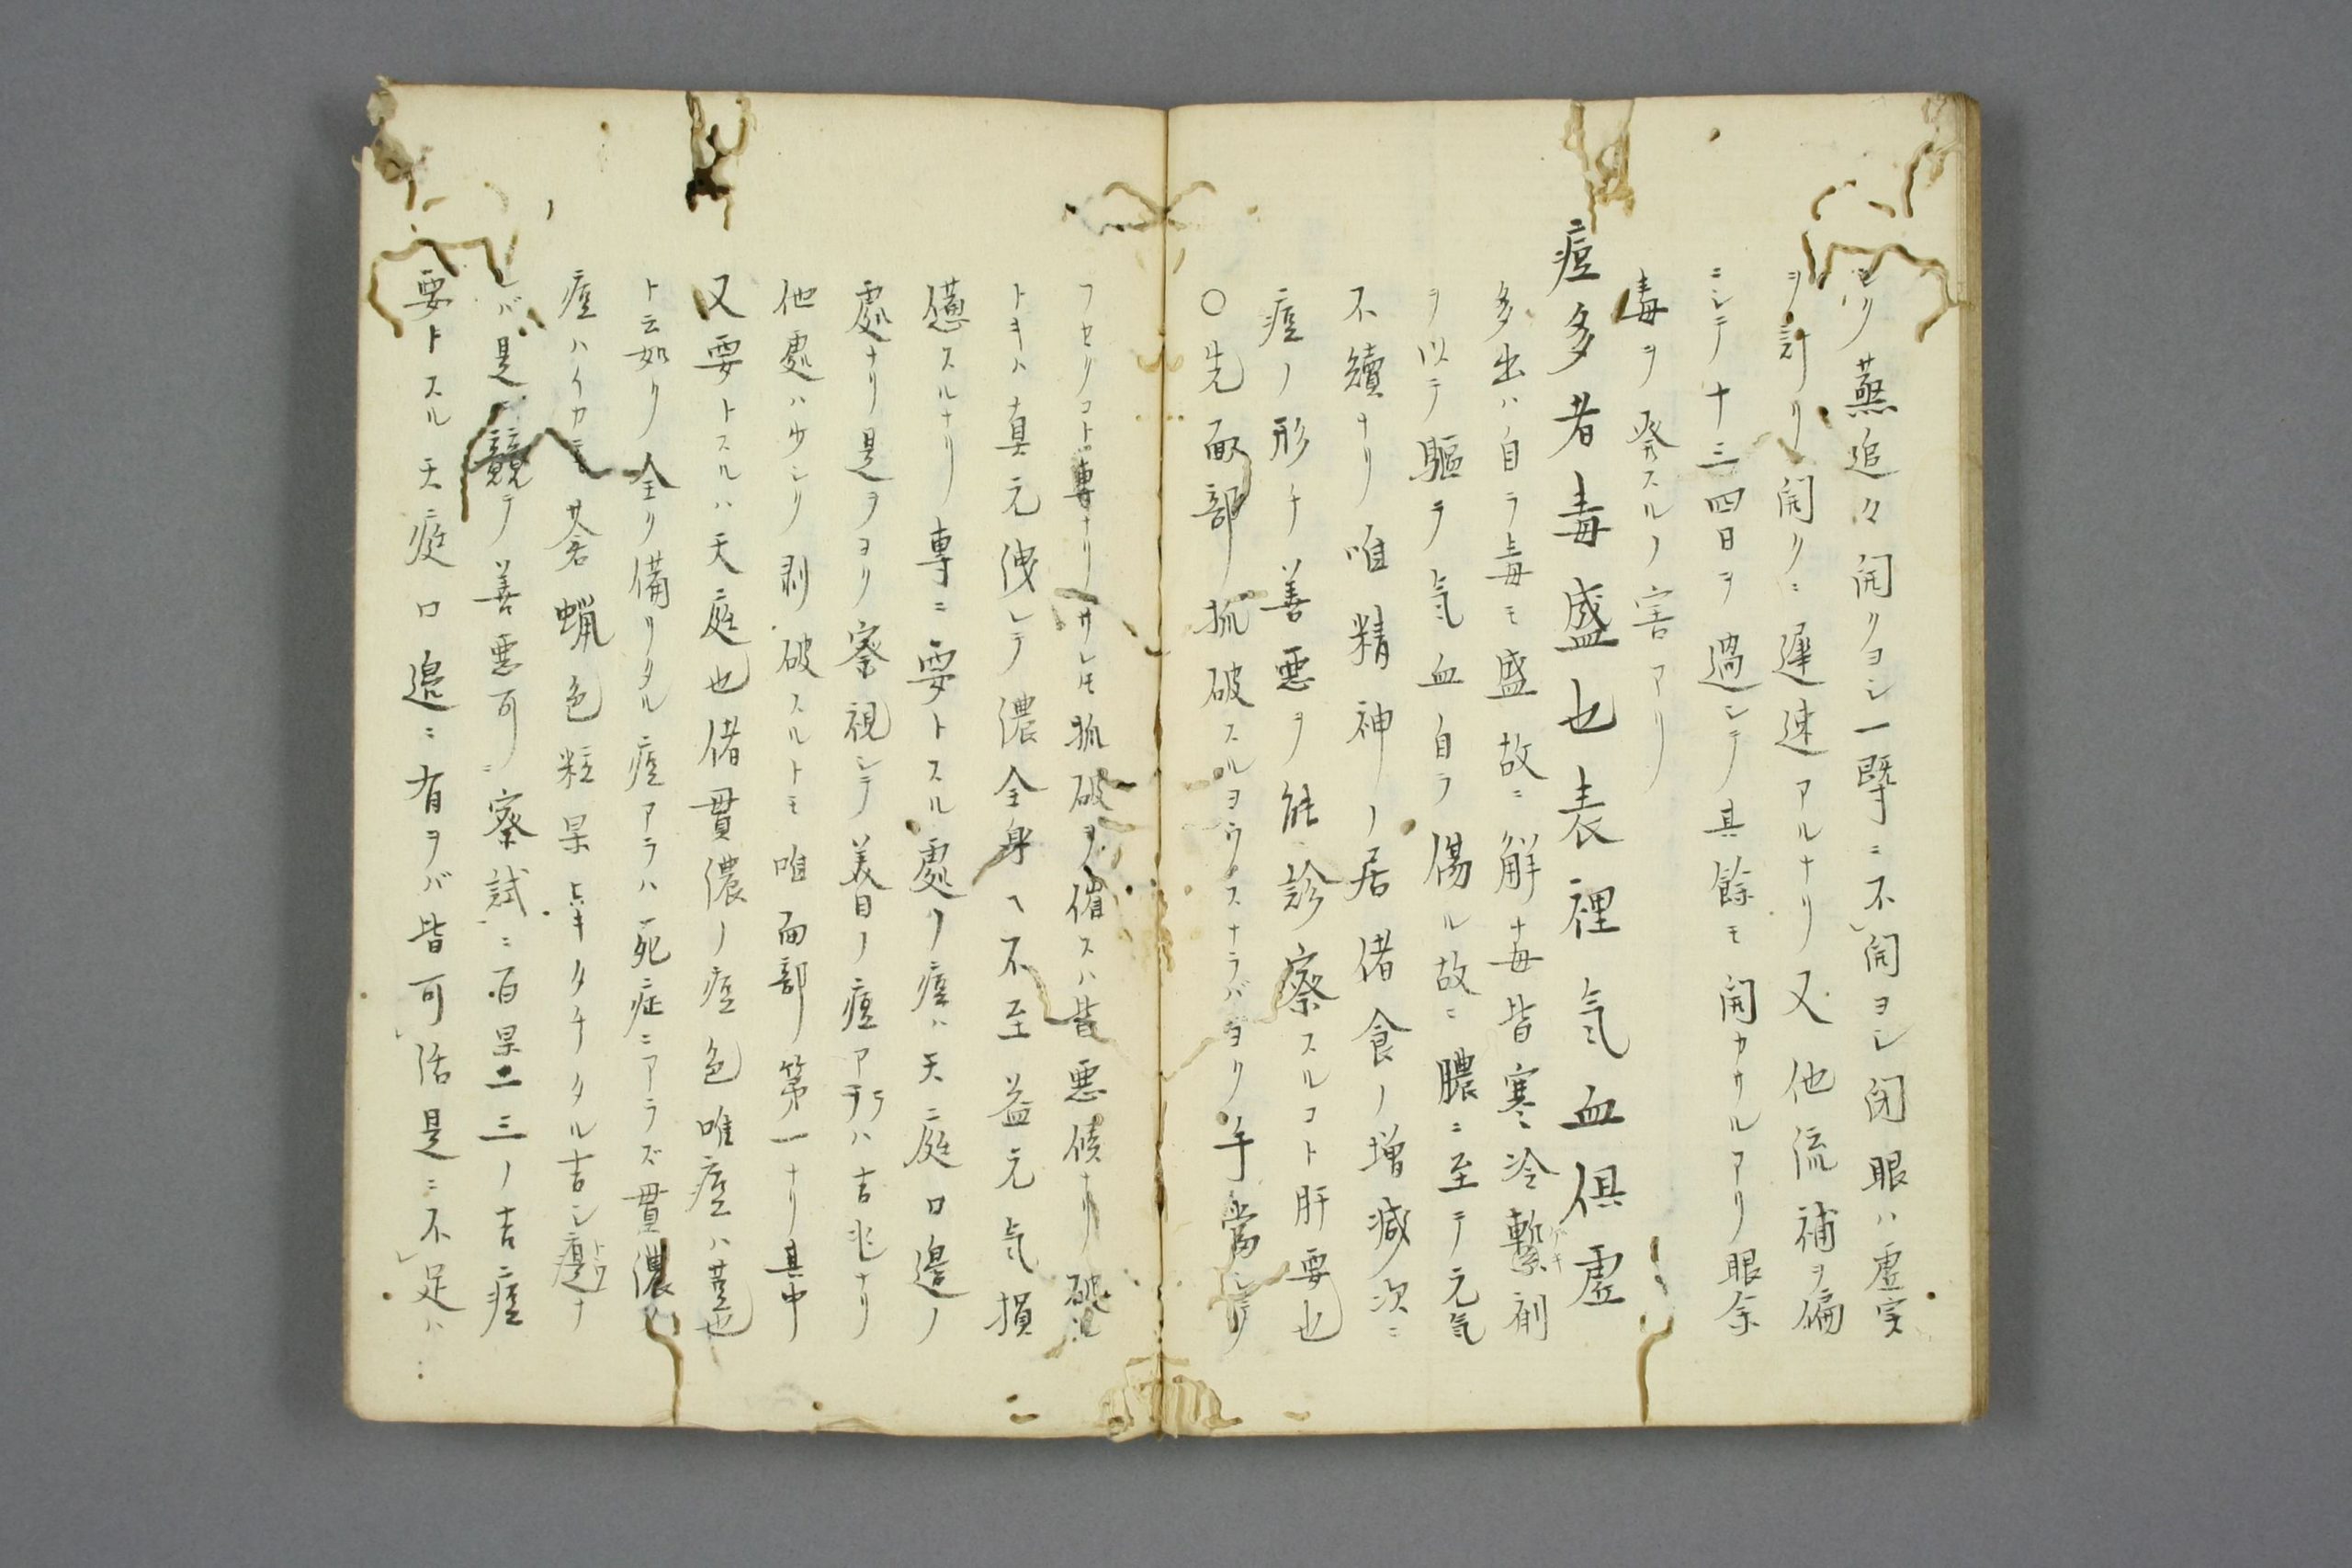 ヨリ蒸追々開クヨシ一槩ニ不開ヨシ閉眼ハ虚実
ヲ計リ開クニ遲速アルナリ又他流補ヲ偏
ニシテ十三四日ヲ過シテ其餘モ開カサルアリ眼余
毒ヲ発スルノ害アリ
痘多者毒盛也表裡気血俱虚
多出ハ自ラ毒モ盛故ニ解毒皆寒冷繋剤
ヲ以テ驅テ気血自ラ傷ル故ニ膿ニ至テ元気
不續ナリ唯精神ノ居偖食ノ增減次ニ
痘ノ形チ善悪ヲ能診察スルコト肝要也
〇先面部抓破スルヨウスナラバヨク手當シ
フセクコト専ナリサレ𪜈抓破ヲ催スハ皆悪候ナリ破
トキハ真元洩レテ濃全身ヘ不至益元気損
憊スルナリ専ニ要トスル處ノ痘ハ天庭口邉ノ
處ナリ是ヲヨク察視シテ美目ノ痘アラハ吉兆ナリ
他處ハ少シク剥破スルトモ唯面部第一ナリ其中
又要トスルハ天庭也偖貫濃ノ痘色唯痘ハ莄也
ト云如ク全ク備リタル痘アラハ死症ニアラズ貫濃
痘ハイカニモ苍蝋色粒杲㸃キタチタル吉シ
レバ是ニ競テ善悪可察試ニ百杲ニ二三ノ吉痘
要トスル天庭口邉ニ有ヲバ皆可活是ニ不足ハ